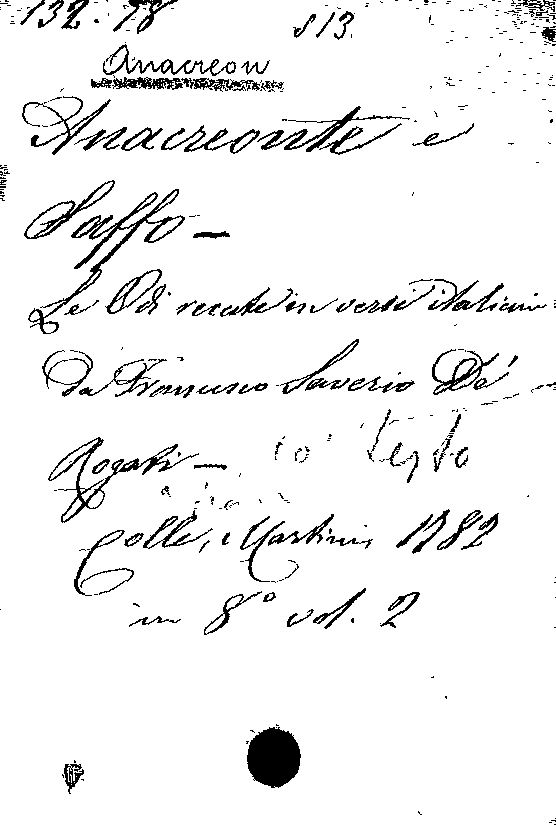 132. 78 813
Anacreon
Anacreonte e
Saffo —
Le Odi recate in versi italiani
da Francesco Saverio De'
Rogati — co' testo
Colle, Martini, 1782
in 8° vol. 2